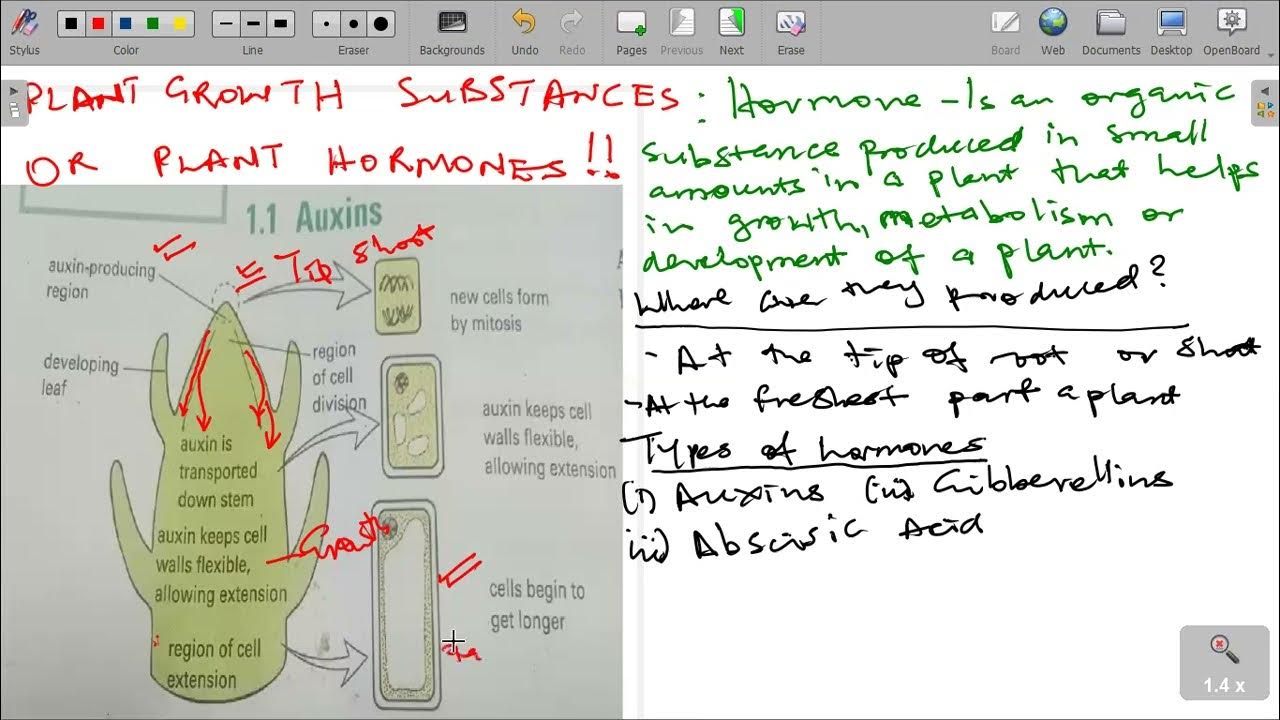 Stylus
Color
Line
Eraser
Backgrounds
Undo
Redo
Pages
Previous
Next
Erase
Board
Web
Documents
Desktop
OpenBoard
PLANT GROWTH SUBSTANCES :
OR PLANT HORMONES !!
Hormone - Is an organic
substance produced in small
amounts in a plant that helps
in growth, metabolism or
development of a plant.
Where are they produced?
- At the tip of root or shoot
- At the freshest part a plant
Types of hormones
(i) Auxins (ii) Gibberellins
iii) Abscisic Acid
1.1 Auxins
auxin-producing
region
Tip shoot
new cells form
by mitosis
developing
leaf
region
of cell
division
auxin keeps cell
walls flexible,
allowing extension
auxin is
transported
down stem
auxin keeps cell
walls flexible,
allowing extension
Growth
cells begin to
get longer
region of cell
extension
1.4 x